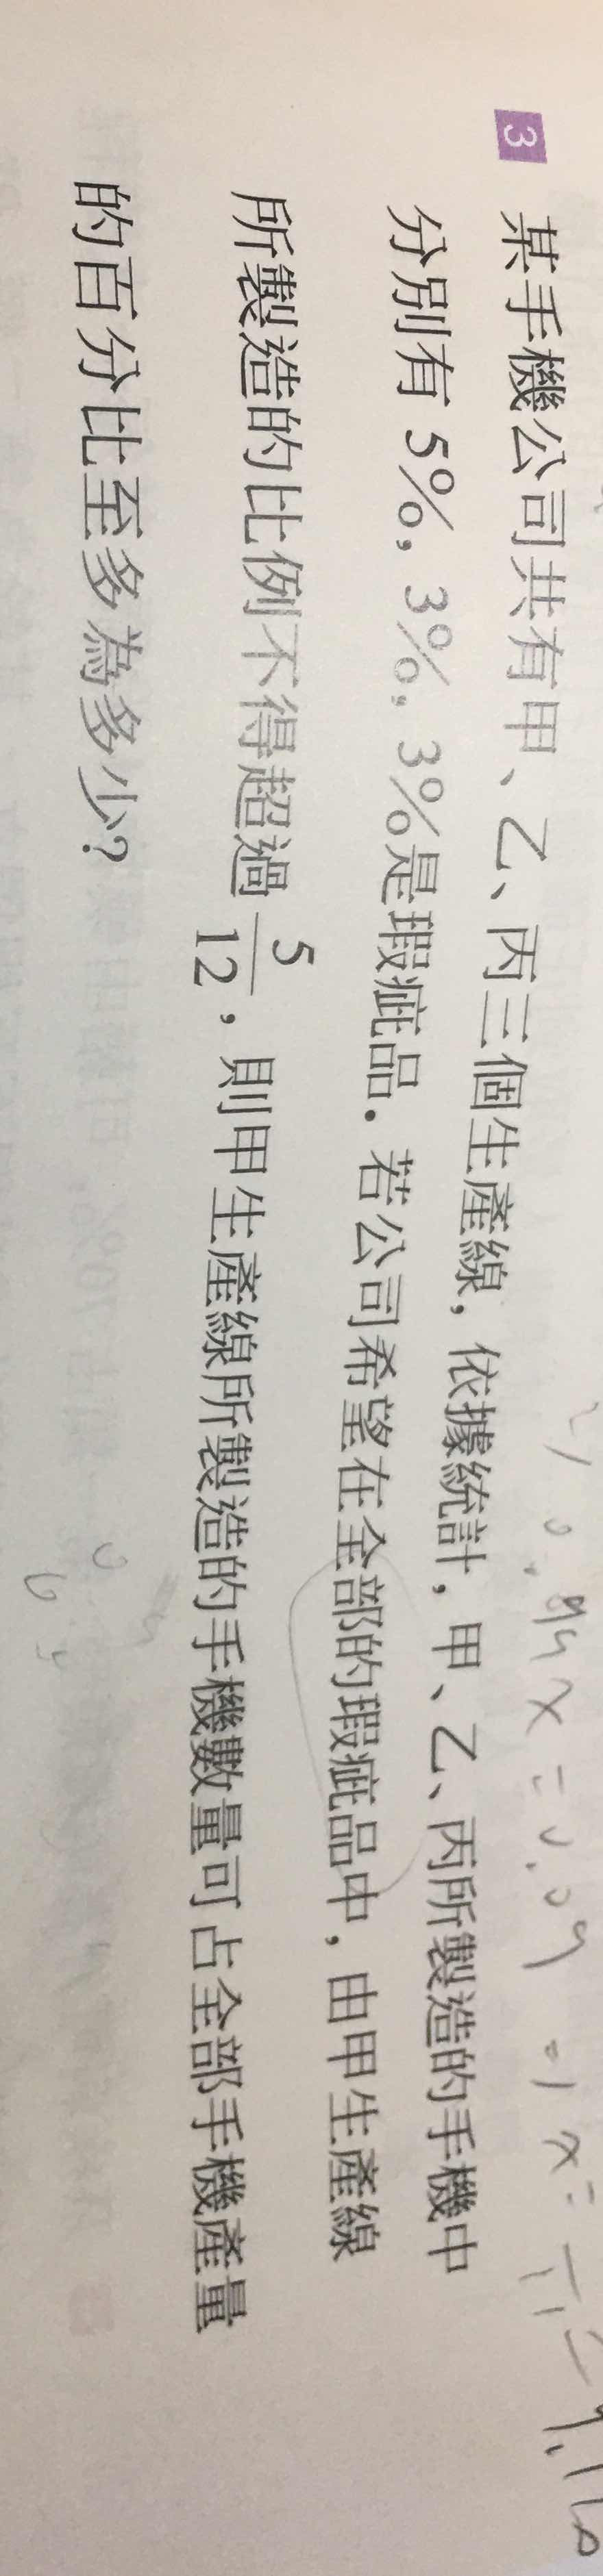 3 某手機公司共有甲、乙、丙三個生產線，依據統計，甲、乙、丙所製造的手機中
分別有 5%, 3%, 3%是瑕疵品．若公司希望在全部的瑕疵品中，由甲生產線
所製造的比例不得超過 5/12，則甲生產線所製造的手機數量可占全部手機產量
的百分比至多為多少？